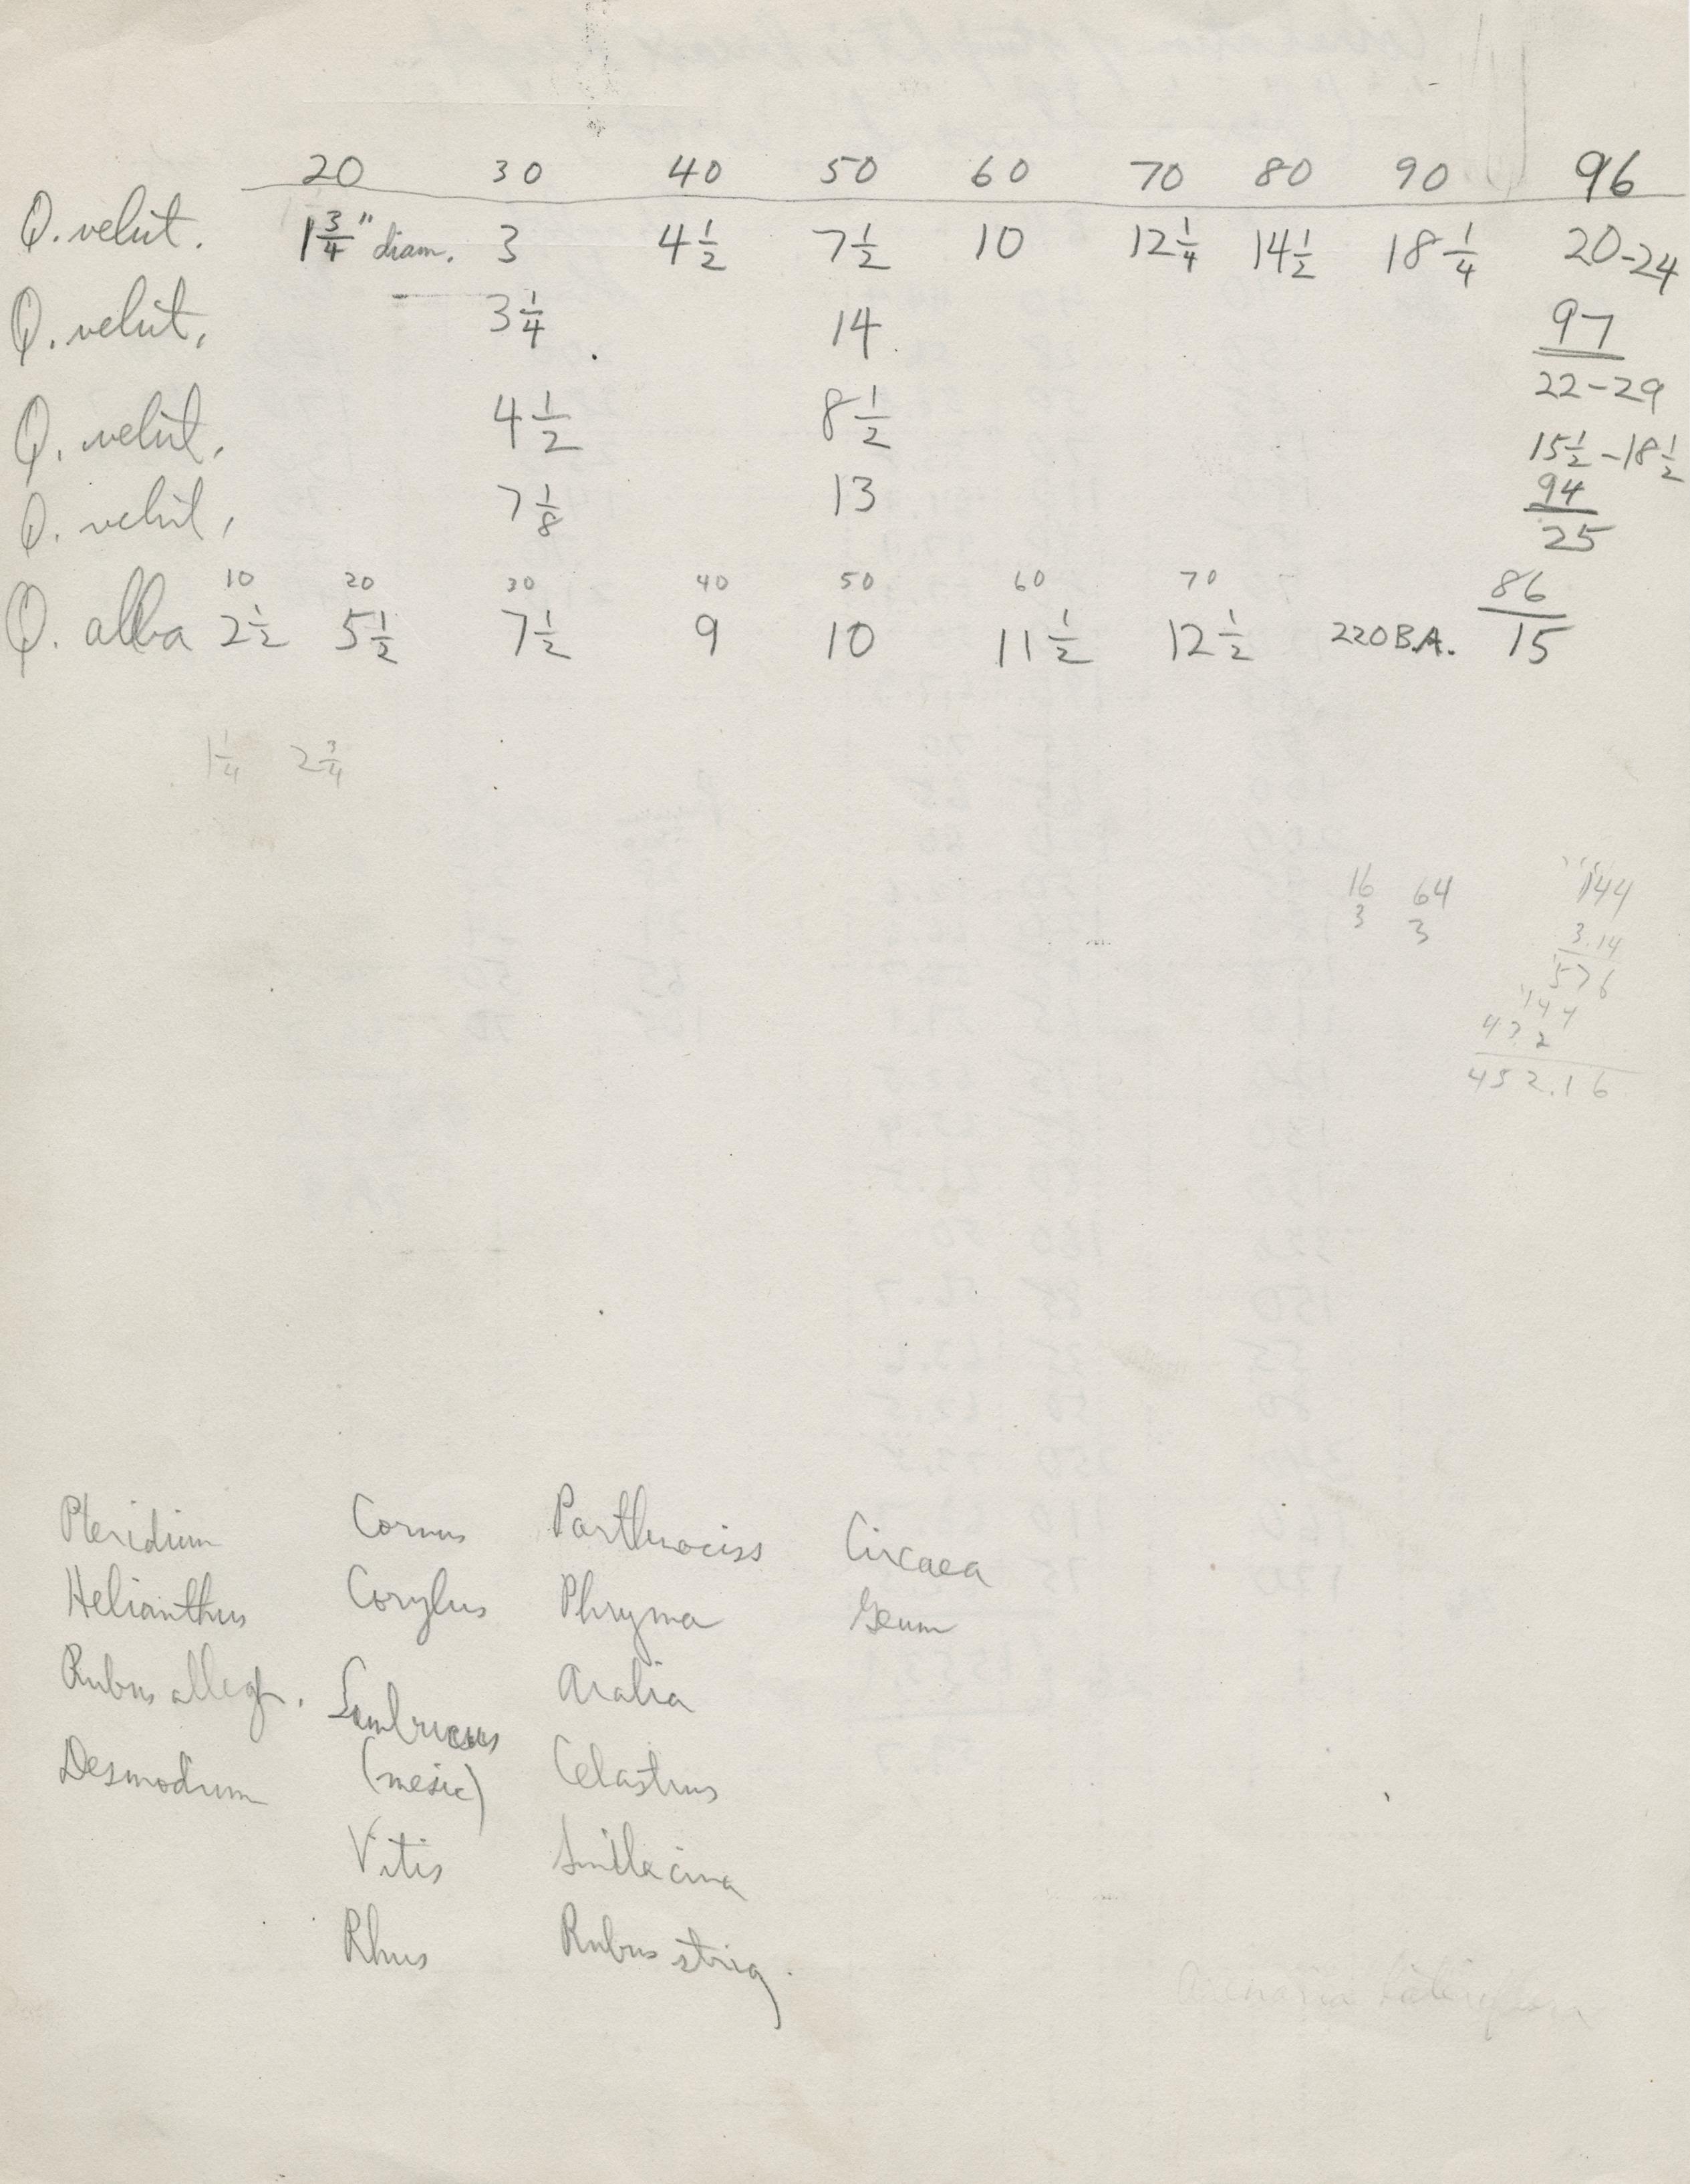 20 30 40 50 60 70 80 90 96
Q. velut. 1 3/4" diam. 3 4 1/2 7 1/2 10 12 1/4 14 1/2 18 1/4 20-24
Q. velut. 3 1/4 14 97
22-29
Q. velut. 4 1/2 8 1/2 15 1/2 - 18 1/2
Q. velut. 7 1/8 13 94
25
10 20 30 40 50 60 70 86
Q. alba 2 1/2 5 1/2 7 1/2 9 10 11 1/2 12 1/2 220 B.A. 15
1 1/4 2 3/4
16 64 144
3 3 3.14
576
144
432
452.16
Pteridium Cornus Parthnociss Circaea
Helianthus Corylus Phryma Geum
Rubus alleg. Sambucus Aralia
Desmodium (mesic) Celastrus
Vitis Smilacina
Rhus Rubus strig.
Arenaria lateriflora